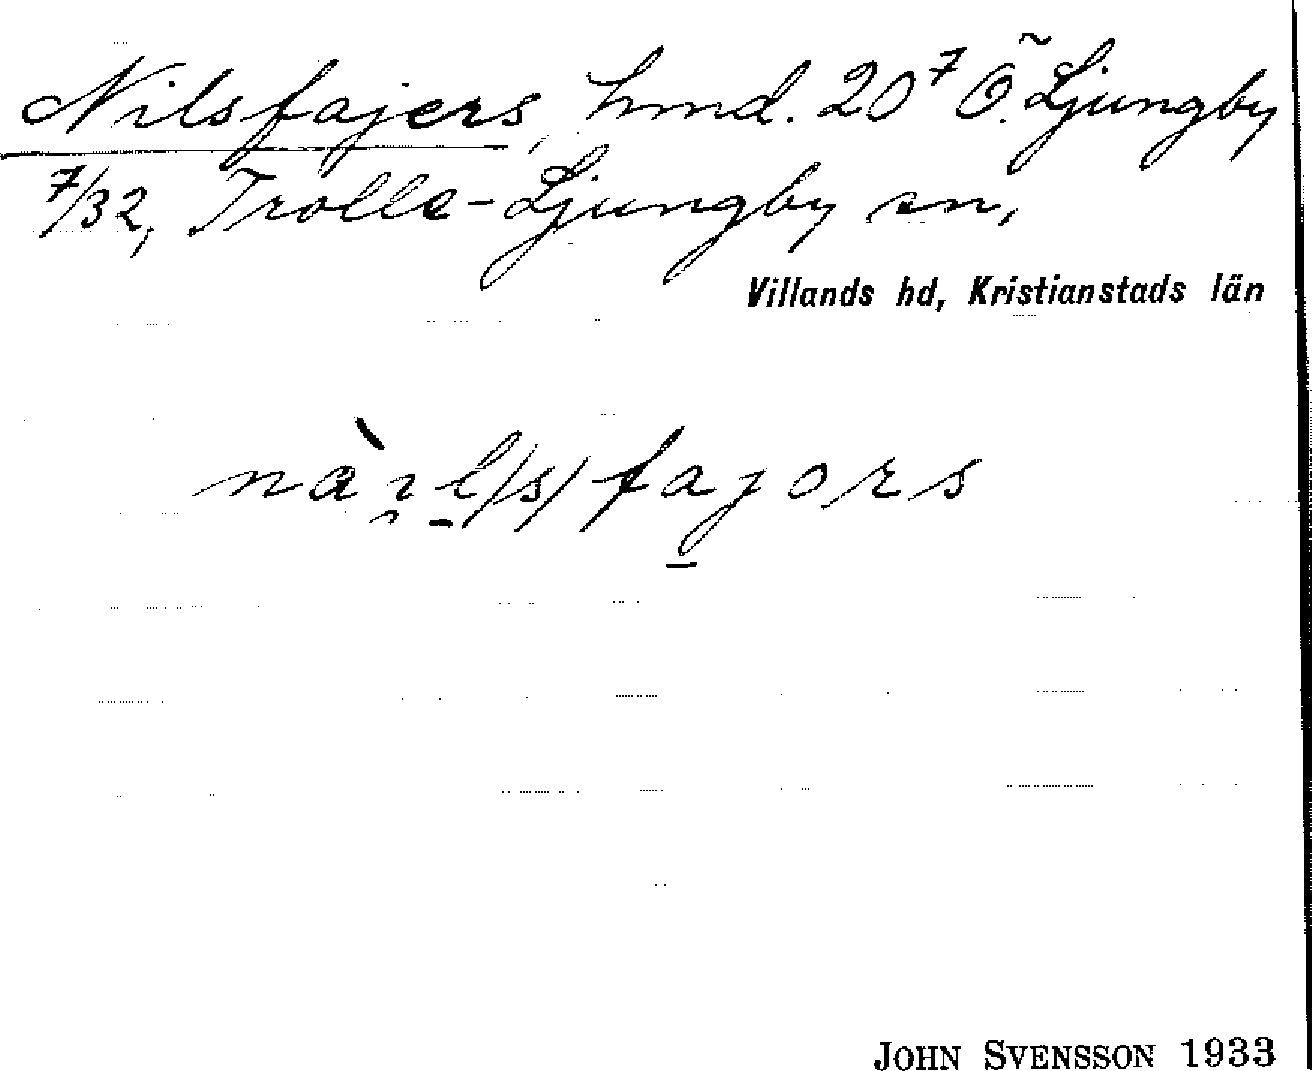 Nilsfajers, hmd. 20⁷ Ö. Ljungby
7/32, Trolle-Ljungby sn,
Villands hd, Kristianstads län
nàɪl/s/fajors
JOHN SVENSSON 1933